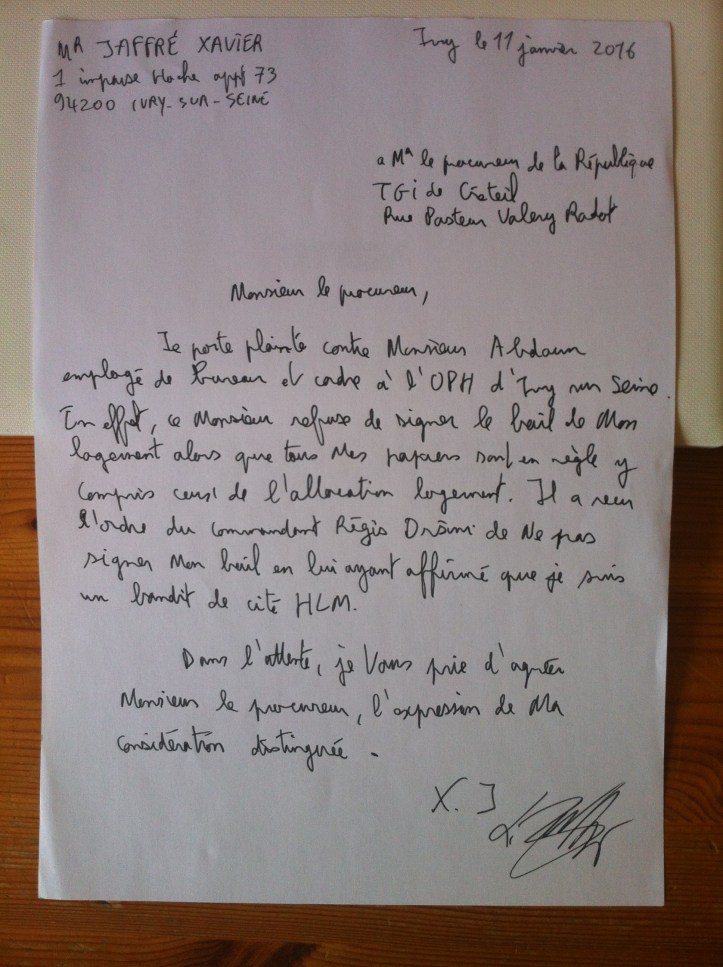 MR JAFFRÉ XAVIER
Ivry le 11 janvier 2016
1 impasse Hoche appt 73
94200 IVRY-SUR-SEINE
a Mr le procureur de la République
TGi de Créteil
Rue Pasteur Valery Radot
Monsieur le procureur,
Je porte plainte contre Monsieur Abdaum
employé de bureau et cadre à l'OPH d'Ivry sur Seine.
En effet, ce Monsieur refuse de signer le bail de Mon
logement alors que tous Mes papiers sont en règle y
compris ceux de l'allocation logement. Il a reçu
l'ordre du commandant Régis de Ne pas
signer Mon bail en lui ayant affirmé que je suis
un bandit de cité HLM.
Dans l'attente, je Vous prie d'agréer
Monsieur le procureur, l'expression de Ma
considération distinguée.
X. J